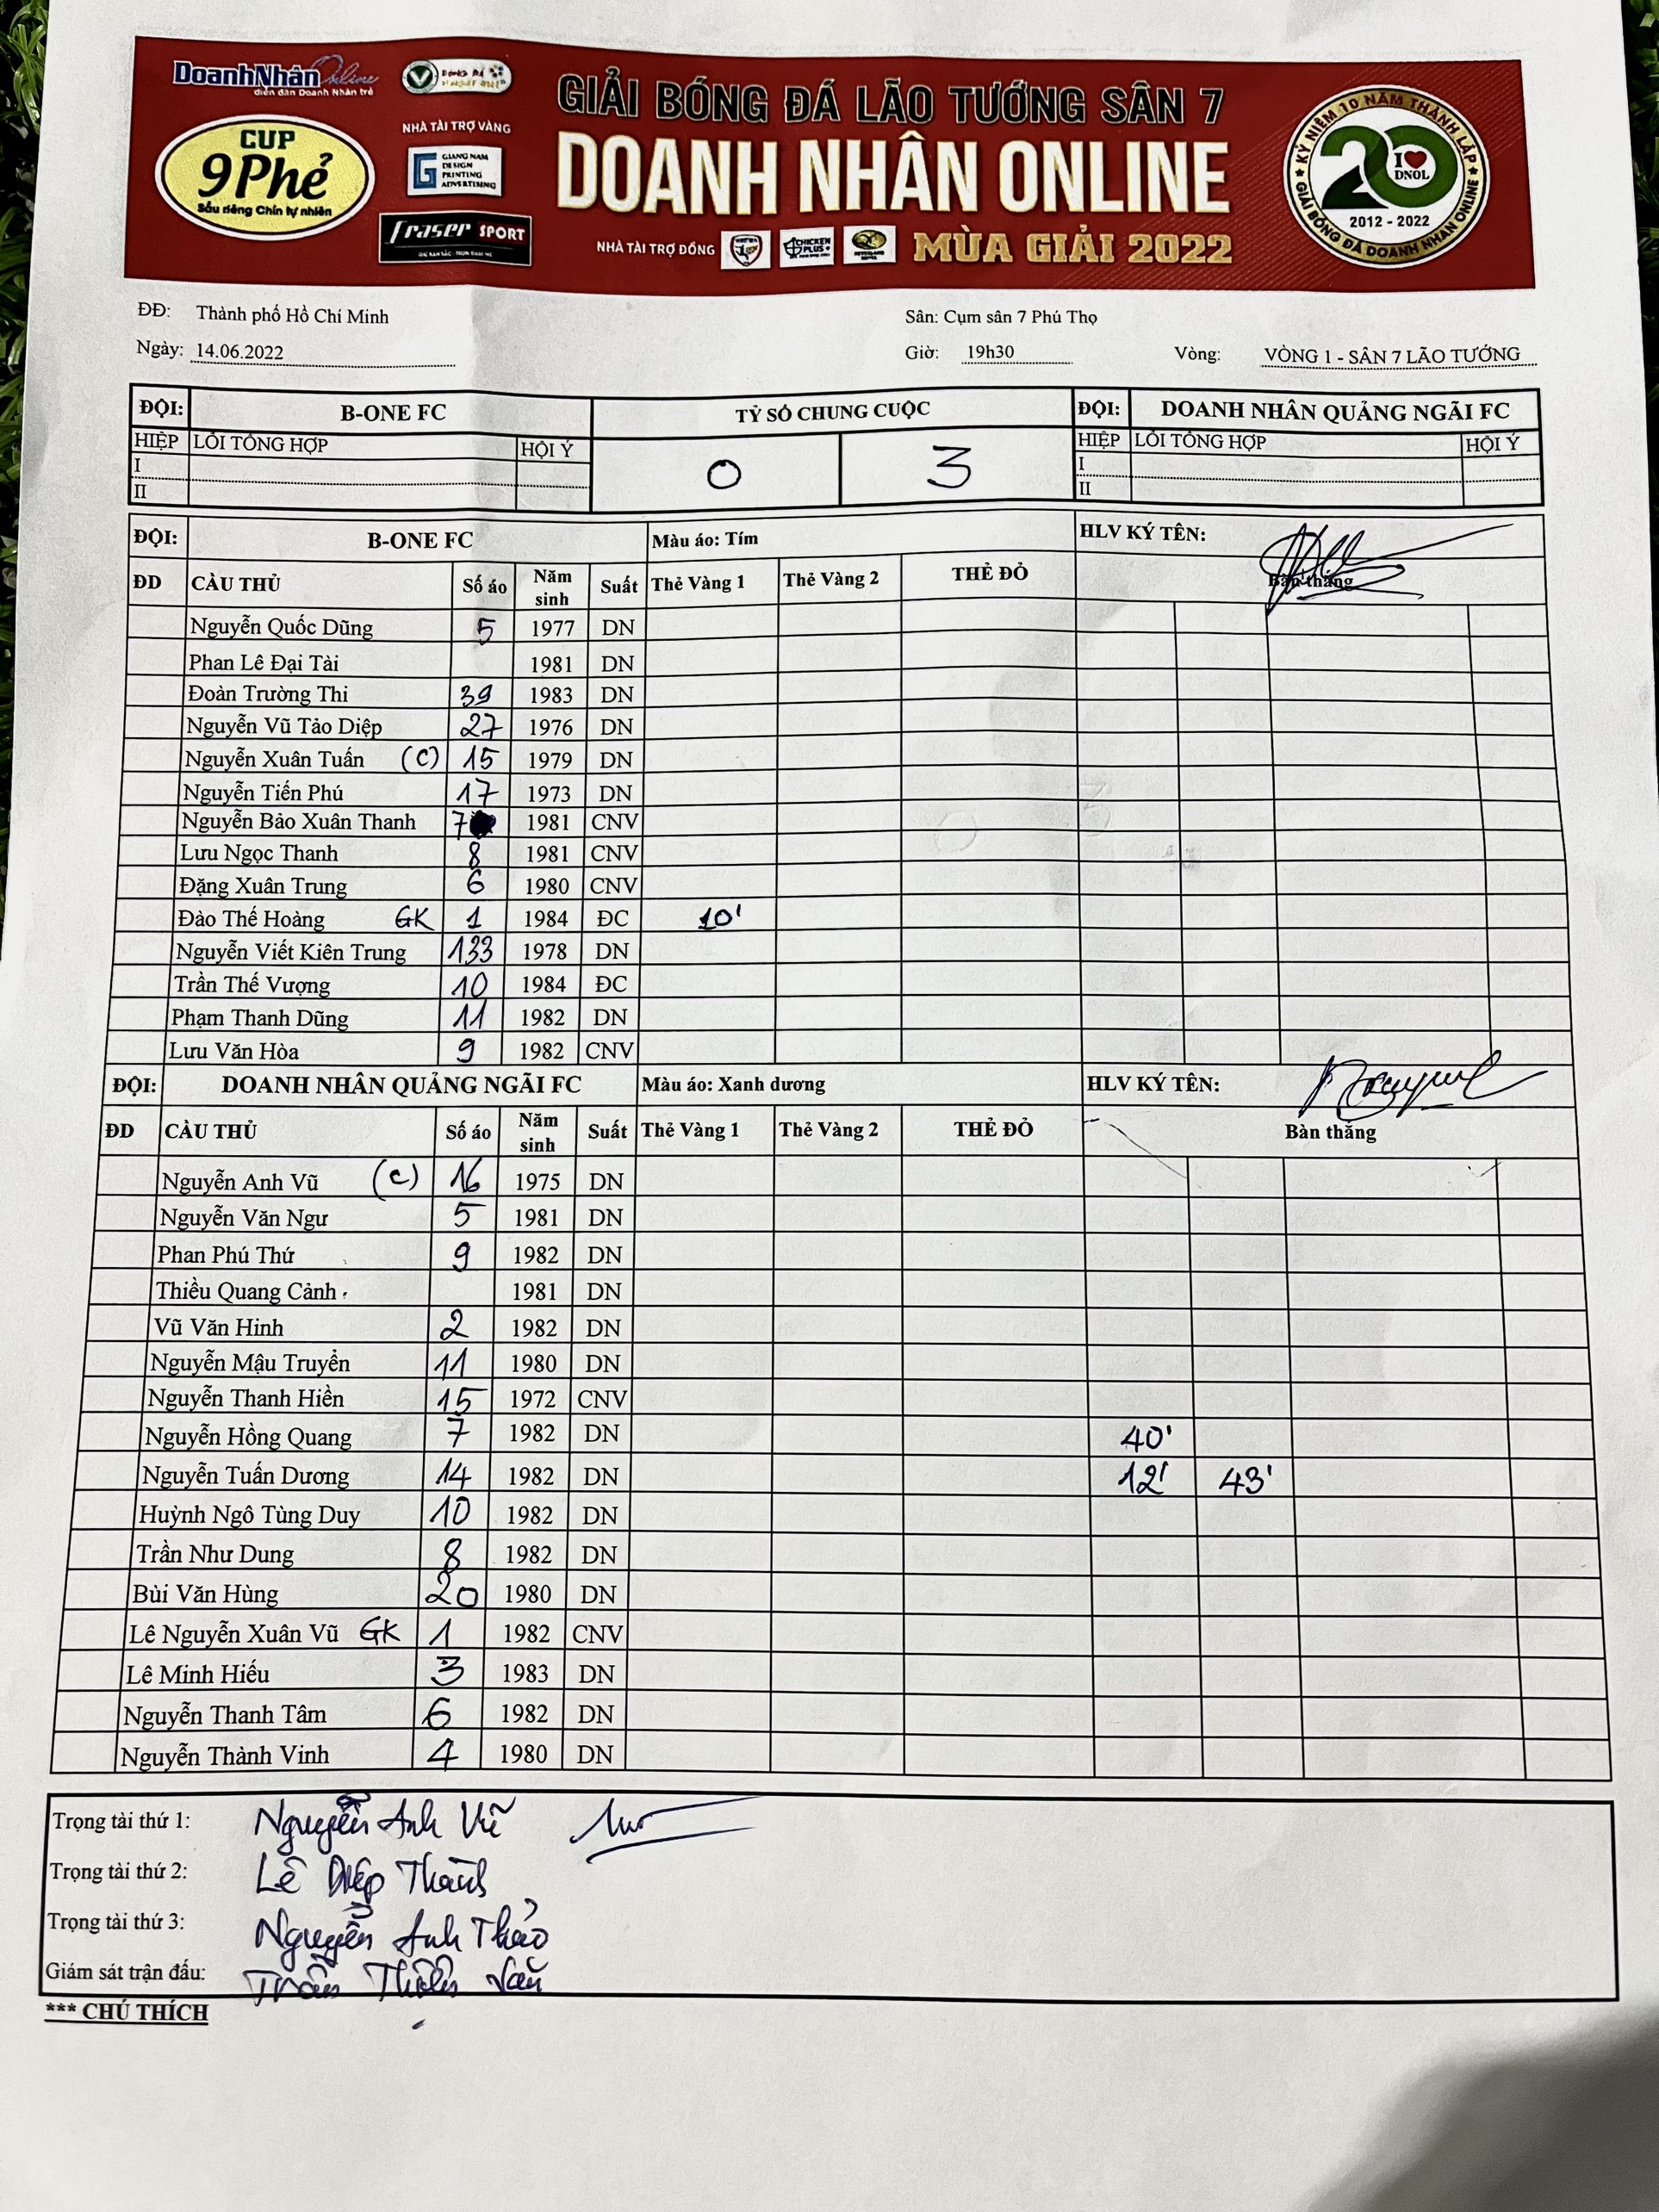 DoanhNhân Online
diễn đàn Doanh Nhân trẻ
CUP
9Phẻ
Sầu riêng Chín tự nhiên
NHÀ TÀI TRỢ VÀNG
GIANG NAM
DESIGN
PRINTING
ADVERTISING
fraser SPORT
GIẢI BÓNG ĐÁ LÃO TƯỚNG SÂN 7
DOANH NHÂN ONLINE
NHÀ TÀI TRỢ ĐỒNG
CHICKEN
PLUS
MÙA GIẢI 2022
KỶ NIỆM 10 NĂM THÀNH LẬP
20
I ❤ DNOL
2012 - 2022
GIẢI BÓNG ĐÁ DOANH NHÂN ONLINE
ĐĐ: Thành phố Hồ Chí Minh Sân: Cụm sân 7 Phú Thọ
Ngày: 14.06.2022 Giờ: 19h30 Vòng: VÒNG 1 - SÂN 7 LÃO TƯỚNG
ĐỘI: B-ONE FC TỶ SỐ CHUNG CUỘC ĐỘI: DOANH NHÂN QUẢNG NGÃI FC
HIỆP LỖI TỔNG HỢP HỘI Ý 0 3 HIỆP LỖI TỔNG HỢP HỘI Ý
I I
II II
ĐỘI: B-ONE FC Màu áo: Tím HLV KÝ TÊN:
ĐD CẦU THỦ Số áo Năm sinh Suất Thẻ Vàng 1 Thẻ Vàng 2 THẺ ĐỎ Bàn thắng
Nguyễn Quốc Dũng 5 1977 DN
Phan Lê Đại Tài 1981 DN
Đoàn Trường Thi 39 1983 DN
Nguyễn Vũ Tảo Diệp 27 1976 DN
Nguyễn Xuân Tuấn (C) 15 1979 DN
Nguyễn Tiến Phú 17 1973 DN
Nguyễn Bảo Xuân Thanh 7 1981 CNV
Lưu Ngọc Thanh 8 1981 CNV
Đặng Xuân Trung 6 1980 CNV
Đào Thế Hoàng GK 1 1984 ĐC 10'
Nguyễn Viết Kiên Trung 133 1978 DN
Trần Thế Vượng 10 1984 ĐC
Phạm Thanh Dũng 11 1982 DN
Lưu Văn Hòa 9 1982 CNV
ĐỘI: DOANH NHÂN QUẢNG NGÃI FC Màu áo: Xanh dương HLV KÝ TÊN:
ĐD CẦU THỦ Số áo Năm sinh Suất Thẻ Vàng 1 Thẻ Vàng 2 THẺ ĐỎ Bàn thắng
Nguyễn Anh Vũ (C) 16 1975 DN
Nguyễn Văn Ngư 5 1981 DN
Phan Phú Thứ 9 1982 DN
Thiều Quang Cảnh 1981 DN
Vũ Văn Hinh 2 1982 DN
Nguyễn Mậu Truyển 11 1980 DN
Nguyễn Thanh Hiền 15 1972 CNV
Nguyễn Hồng Quang 7 1982 DN 40'
Nguyễn Tuấn Dương 14 1982 DN 12' 43'
Huỳnh Ngô Tùng Duy 10 1982 DN
Trần Như Dung 8 1982 DN
Bùi Văn Hùng 20 1980 DN
Lê Nguyễn Xuân Vũ GK 1 1982 CNV
Lê Minh Hiếu 3 1983 DN
Nguyễn Thanh Tâm 6 1982 DN
Nguyễn Thành Vinh 4 1980 DN
Trọng tài thứ 1: Nguyễn Anh Vũ
Trọng tài thứ 2: Lê Diệp Thành
Trọng tài thứ 3: Nguyễn Anh Thảo
Giám sát trận đấu: Trần
*** CHÚ THÍCH